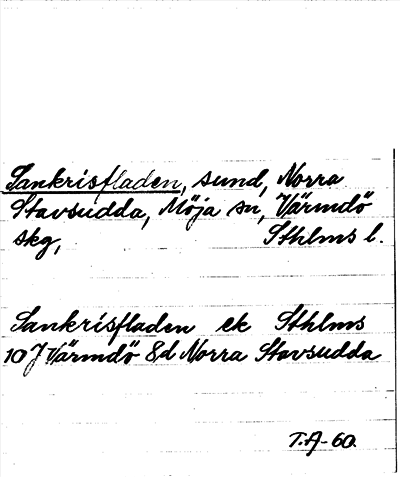 Sankrisfladen, sund, Norra
Stavsudda, Möja sn, Värmdö
skg, Sthlms l.
Sankrisfladen ek Sthlms
10J Värmdö 8d Norra Stavsudda
T.A-60.